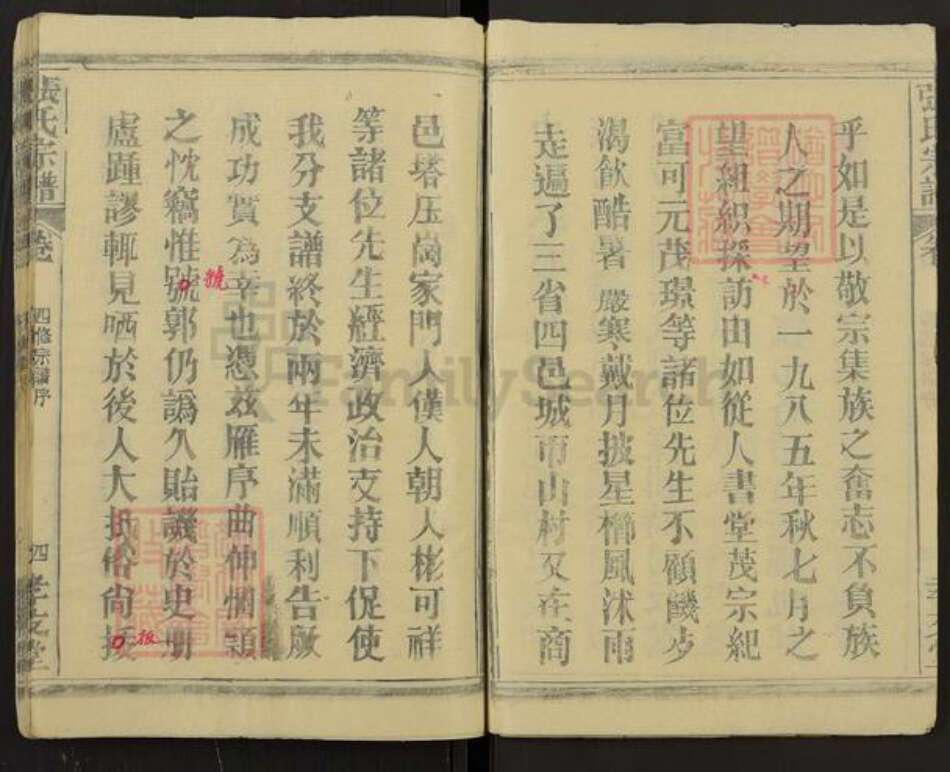 乎如是以敬宗集族之奮志不負族
人之期望於一九八五年秋七月之
望組織採訪由如從人書堂茂宗紀
富可元茂璟等諸位先生不顧饑步
渴飲酷暑嚴寒戴月披星櫛風沐雨
走遍了三省四邑城市山村又在商
邑塔压崗家門人僕人朝人彬可祥
等諸位先生經濟政治支持下促使
我分支譜終於兩年未滿順利告厥
成功實為幸也憑茲雁序曲伸悃
之忱竊惟號郭仍譌久貽譏於史冊
盧踵謬輒見哂於後人大抵俗尚
號
扳
張氏宗譜
卷
四修宗譜序
四
孝友堂
張氏宗譜
FamilySearch